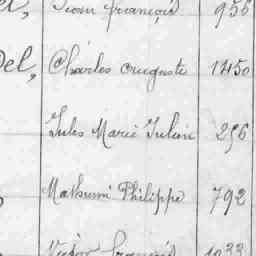 Jean françois 956
Del, Charles auguste 1450
Jules Marie Julien 296
Mathurin Philippe 792
Victor françois 1033